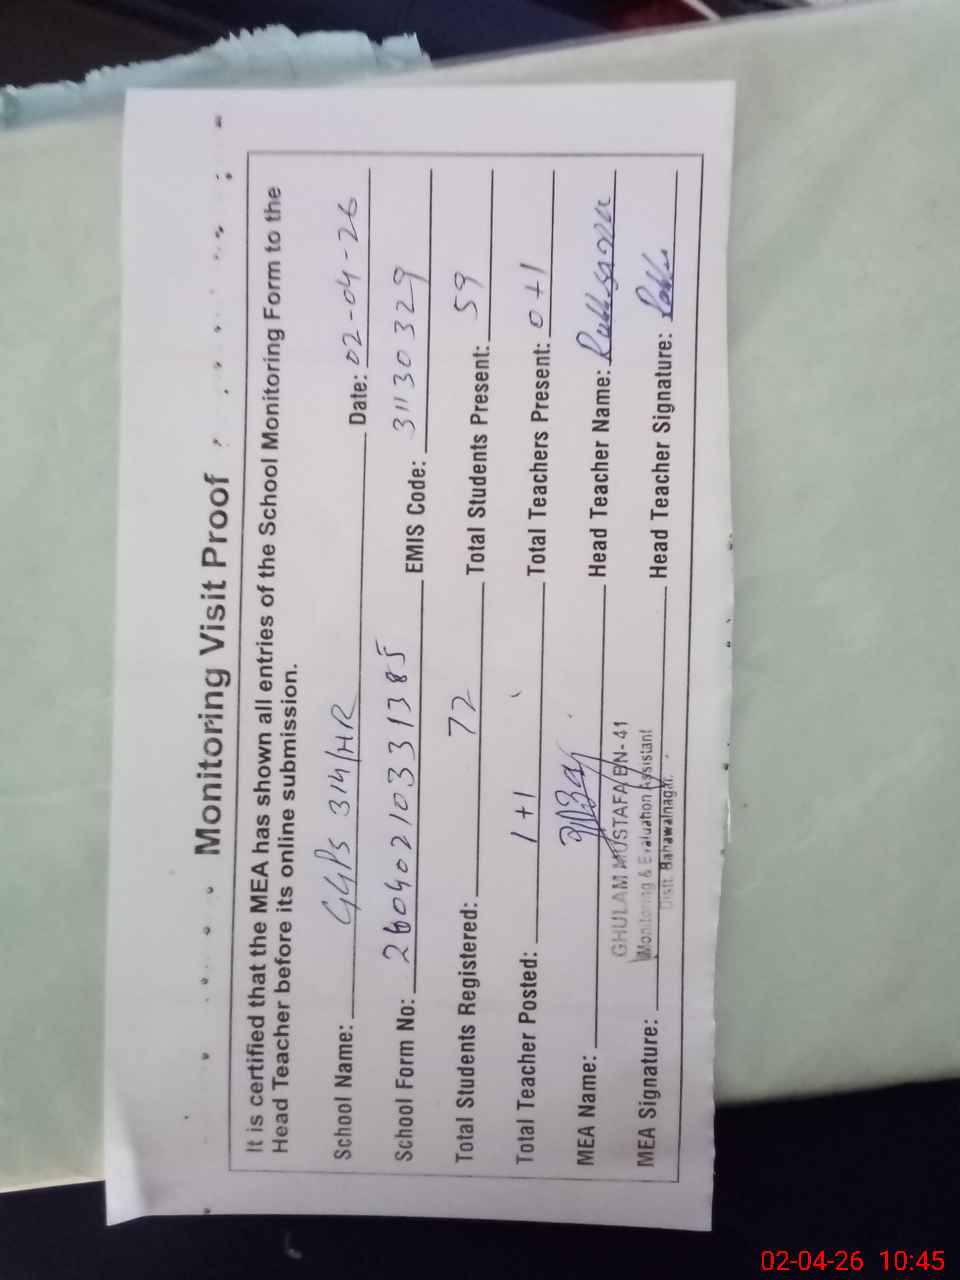 Monitoring Visit Proof
It is certified that the MEA has shown all entries of the School Monitoring Form to the
Head Teacher before its online submission.
School Name: GGPS 314/HR Date: 02-04-26
School Form No: 26040210331385 EMIS Code: 31130329
Total Students Registered: 72 Total Students Present: 59
Total Teacher Posted: 1+1 Total Teachers Present: 0+1
MEA Name: Head Teacher Name: Rukhsana
GHULAM MUSTAFA BN-41
Monitoring & Evaluation Assistant
Distt. Bahawalnagar.
MEA Signature: Head Teacher Signature:
02-04-26 10:45